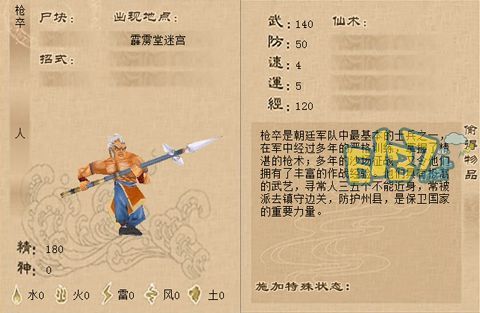 枪卒
人
尸块：
出现地点：
霹雳堂迷宫
招式：
精：180
神：0
水0
火0
雷0
风0
土0
武：140
防：50
速：4
運：5
經：120
仙术：
枪卒是朝廷军队中最基本的士兵之一，
在军中经过多年的严格训练，掌握了精
湛的枪术；多年的沙场征战，又令他们
拥有了丰富的作战经验，他们有着
的武艺，寻常人三五个不能近身，常被
派去镇守边关，防护州县，是保卫国家
的重要力量。
偷得物品
施加特殊状态：